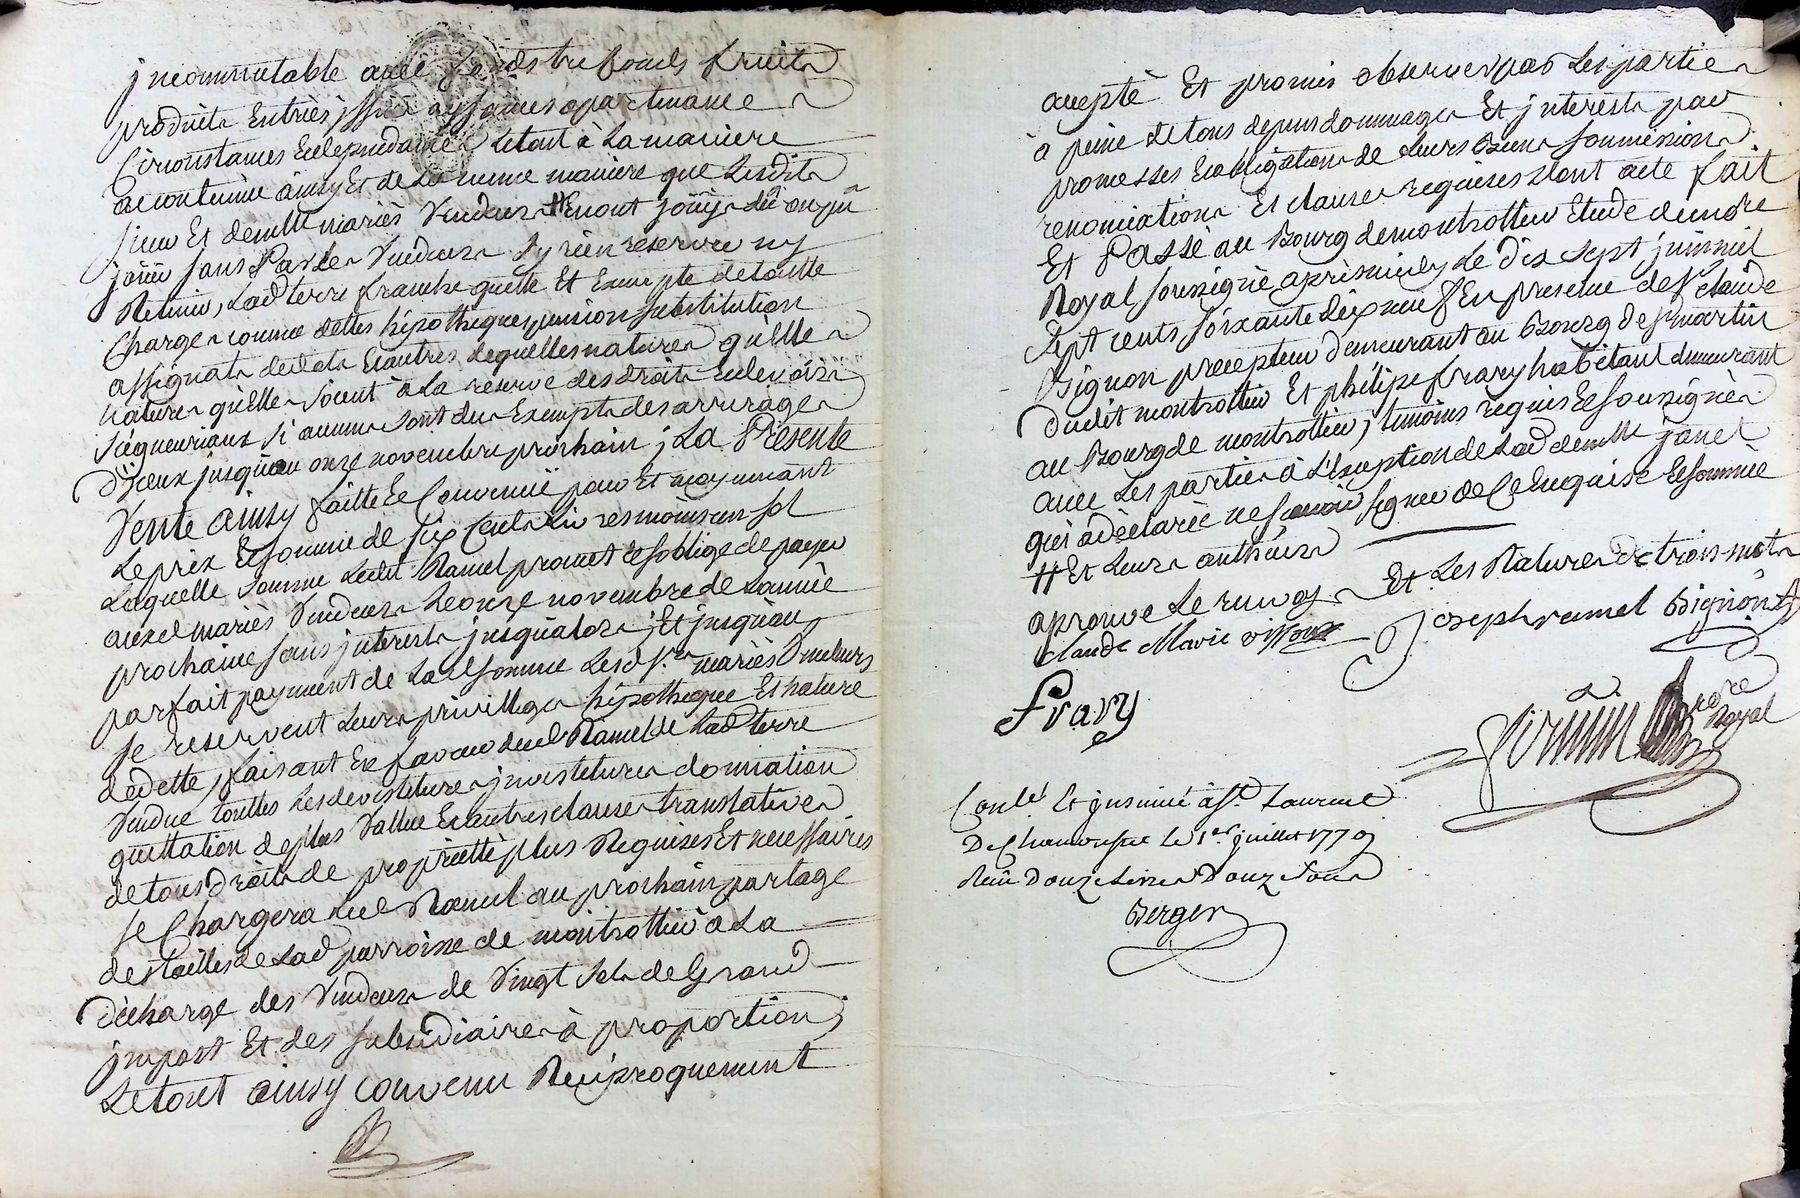 jncommutable avec fonds trefonds fruits
produits Entrées jssues aysances apartenances
Circonstances Et dependances Le tout à La maniere
acoutumée ainsy Et de La meme maniere que Lesdits
sieur Et demlle mariés Vendeurs # En ont joüy dû ou pû
joüir sans Par Les Vendeurs sy rien reserver ny
Retenir, Lad terre franche quitte Et Exempte de toutte
Charges comme dettes hipotheques pension substitution
assignats deleds Et autres de quelles natures qu'elles
natures qu'elles soient à La reserve des droits Et devoirs
seigneuriaux si aucuns sont dus Exempts des arrerages
D'jceux jusqu'au onze novembre prochain ; La Presente
Vente ainsy faitte Et Convenüe pour Et moyennant
Le prix Et somme de six Cents Livres moins un sol
Laquelle somme Ledit Ramel promet Et s'oblige de payer
auxd mariés Vendeurs Le onze novembre de L'année
prochaine sans jnterests jusqu'alors ; Et jusqu'au
parfait payement de Lad somme Lesd srs mariés Vendeurs
se reservent Leurs privilleges hipotheque Et nature
de dette, faisant En faveur dud Ramel de Lad terre
Vendue touttes Les devestitures jnvestitures donnation
quittation de plus Vallue Et autres clauses translatives
de tous droits de proprietté plus Requises Et necessaires
se Chargera Led Ramel au prochain partage
des tailles de Lad parroisse de montrottier à La
décharge des Vendeurs de Vingt sols de Grand
jmpost Et des subsidiaires à proportion ;
Le tout ainsy convenu Reciproquement
accepté Et promis observer par Les parties
à peine de tous depens dommages Et jnterests par
promesses Et obligation de Leurs biens soumissions
renonciations Et clauses requises dont acte fait
Et Passé au Bourg de montrottier Etude de nore
Royal soussigné après midy Le dix sept juin mil
sept cents soixante dix neuf En presence de sr claude
Bignon precepteur demeurant au Bourg de st martin
dudit montrottier Et philipe frary habitant demeurant
au Bourg de montrottier, temoins requis Et soussignés
avec Les parties à L'exeption de Lad demlle janet
qui a déclarée ne sçavoir signer de Ce Enquise Et sommée
# Et Leurs autheurs
aprouve Le renvoy Et Les Ratures de trois mots
claude Marie vissoux Joseph ramel Bignon
Frary
nore Royal
Conlé Et jnsinué à St Laurent
De Chamousset Le 1er juillet 1779
Reçu Douze Livres Douze sous
Berger